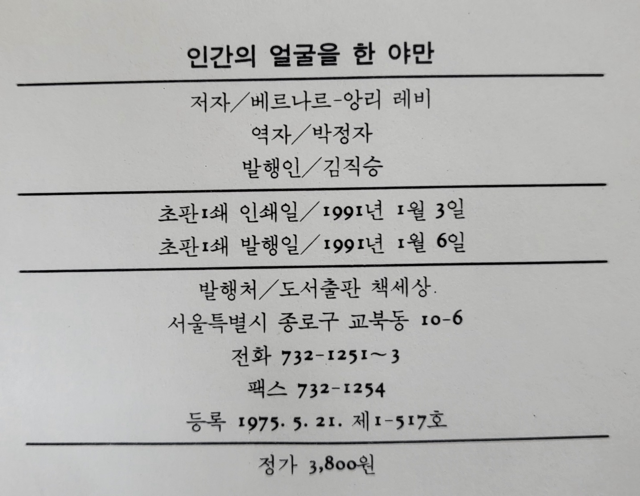 인간의 얼굴을 한 야만
저자/베르나르-앙리 레비
역자/박정자
발행인/김직승
초판1쇄 인쇄일/1991년 1월 3일
초판1쇄 발행일/1991년 1월 6일
발행처/도서출판 책세상.
서울특별시 종로구 교북동 10-6
전화 732-1251~3
팩스 732-1254
등록 1975. 5. 21. 제1-517호
정가 3,800원